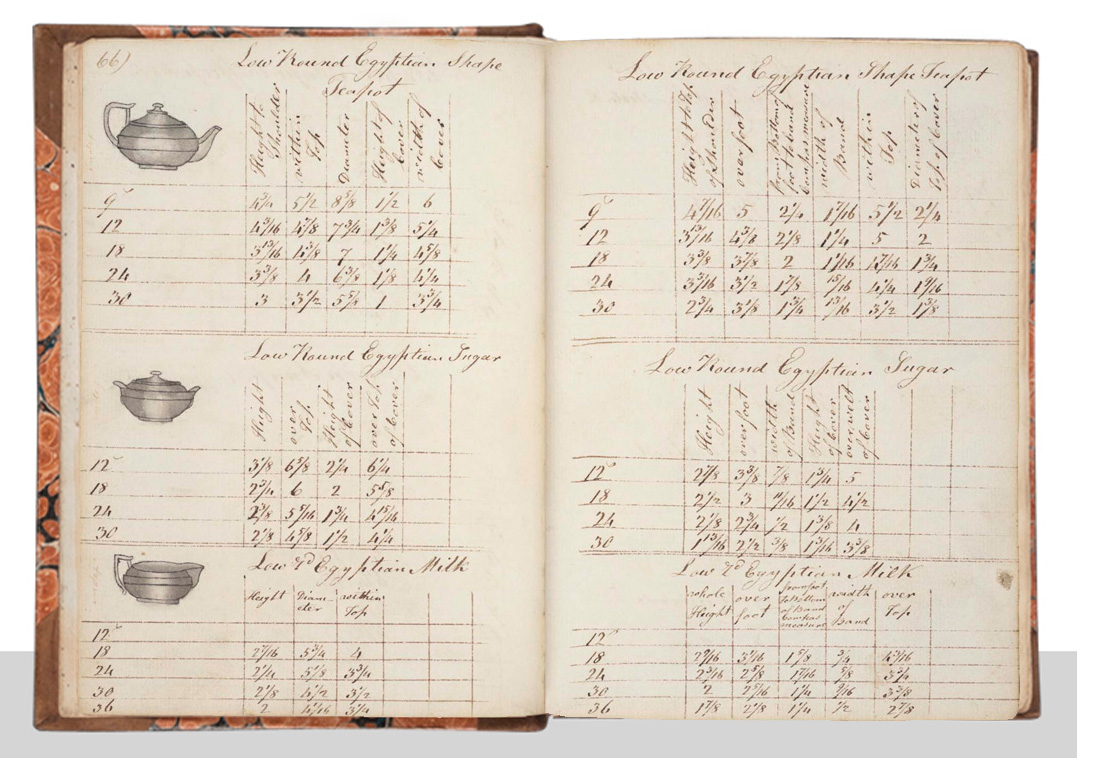 66)
Low Round Egyptian Shape
Teapot
Height of Shoulder
within Top
Diameter
Height of Cover
width of Cover
9 5 1/2 8 5/8 1 1/2 6
12 4 3/16 4 7/8 7 3/4 1 3/8 5 1/4
18 3 13/16 4 3/8 7 1 1/4 4 5/8
24 3 3/8 4 6 3/8 1 1/8 4 1/4
30 3 3 1/2 5 3/4 1 3 3/4
Low Round Egyptian Sugar
Height
over Top
Height of Cover
over Top of Cover
12 3 1/8 6 5/8 2 1/4 6 1/4
18 2 3/4 6 2 5 5/8
24 2 3/8 5 5/16 1 3/4 4 15/16
30 2 1/8 4 5/8 1 1/2 4 1/4
Low Rd Egyptian Milk
Height Diameter within Top
12
18 2 7/16 5 3/4 4
24 2 1/4 5 1/8 3 3/4
30 2 1/8 4 1/2 3 1/2
36 2 4 3/16 3 1/4
Low Round Egyptian Shape Teapot
Height to Top of Shoulder
over foot
From Bottom of foot to band Compas measure
width of Band
within Top
Diameter of Top of Cover
9 4 7/16 5 2 1/4 1 7/16 5 1/2 2 1/4
12 3 13/16 4 3/8 2 1/8 1 1/4 5 2
18 3 3/8 3 7/8 2 1 1/16 4 7/16 1 3/4
24 3 3/16 3 1/2 1 7/8 15/16 4 1/4 1 9/16
30 2 3/4 3 1/8 1 3/4 13/16 3 1/2 1 3/8
Low Round Egyptian Sugar
Height
over foot
width of Band
Height of Cover
over welt of Cover
12 2 7/8 3 3/8 7/8 1 3/4 5
18 2 1/2 3 11/16 1 1/2 4 1/2
24 2 1/8 2 3/4 1/2 1 3/8 4
30 1 13/16 2 1/2 3/8 1 3/16 3 5/8
Low Rd Egyptian Milk
whole Height
over foot
From foot to Bottom of Band Compas measure
width of Band
over Top
12
18 2 9/16 3 1/16 1 5/8 3/4 4 3/16
24 2 3/16 2 5/8 1 7/16 5/8 3 3/4
30 2 2 5/16 1 1/4 9/16 3 3/8
36 1 7/8 2 1/8 1 1/4 1/2 2 7/8